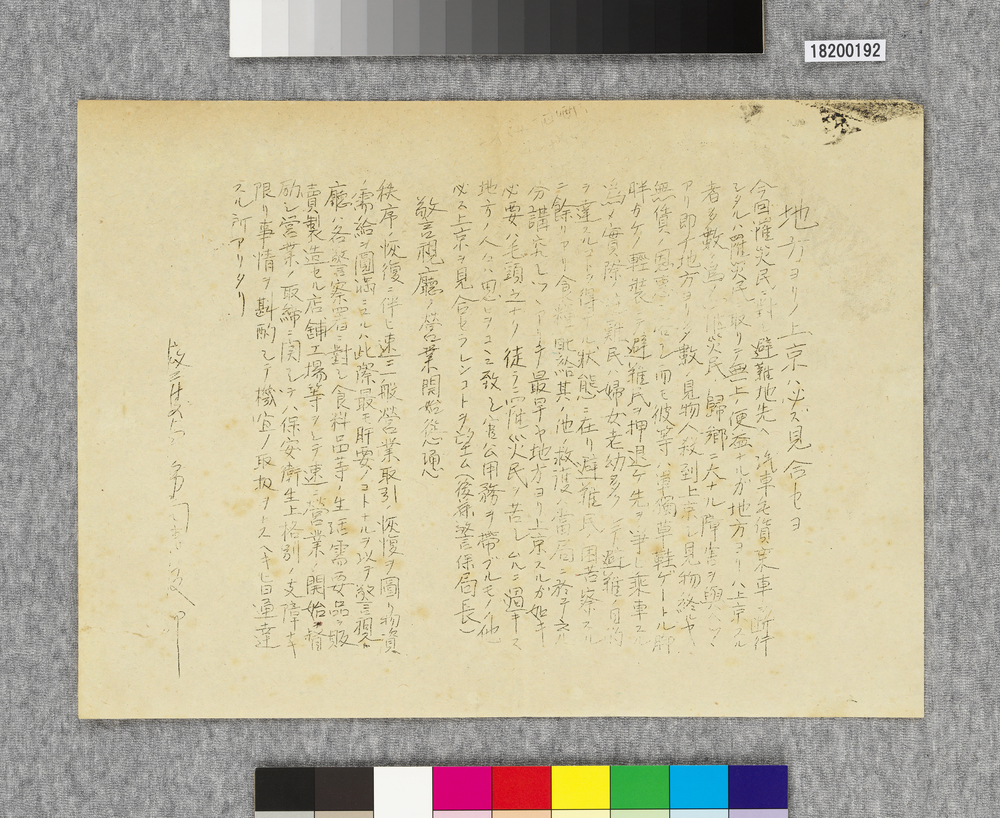 18200192
地方ヨリノ上京ハ必ズ見合セヨ
今回罹災民ニ対シ避難地先ヘ汽車無賃乗車ノ断行
シタルハ罹災民ニ取リテ無上ノ便益ナルガ地方ヨリハ上京スル
者多数ノ為メ罹災民ノ歸郷ニ大ナル障害ヲ與ヘツヽ
アリ即地方ヨリ多数ノ見物人殺到上京シ見物終ルヤ
無賃ノ恩典ニ浴シ而モ彼等ハ草鞋ゲートル脚
胖カケノ軽装ニテ避難民ヲ押退ケ先ヲ爭ヒ乗車スル
為メ實際ノ避難民ハ婦女老幼多ク避難ノ目的
ヲ達スルヲ得ザル状態ニ在リ避難民ノ困苦察スル
ニ餘リアリ食糧ノ配給其ノ他ノ救護ハ當局ニ於テ充
分講究シツヽアルヲ以テ最早ヤ地方ヨリ上京スルガ如キ
必要ハ毛頭之ナク徒ラニ罹災民ノ苦シムルニ過ギズ
地方ノ人々ハ思ヲコヽニ致シ官公用務ヲ帯ブルモノヽ他
必ズ上京ヲ見合セラレンコトヲ望ム(後藤警保局長)
警視廳ノ營業開始慫慂
秩序ノ恢復ニ伴ヒ速ニ一般營業取引ノ恢復ヲ圖リ物資
ノ需給ヲ圓滿ニスルハ此際最モ肝要ノコトナルヲ以テ警視
廳ハ各警察署ニ對シ食料品等ノ生活需要品ヲ販
賣製造セル店舗工場等ヲシテ速ニ營業ノ開始ヲ督
勵シ營業ノ取締ニ関シテハ保安衛生上格別ノ支障ナキ
限リ事情ヲ斟酌シテ機宜ノ取扱ヲナスヘキ旨通達
スル所アリタリ